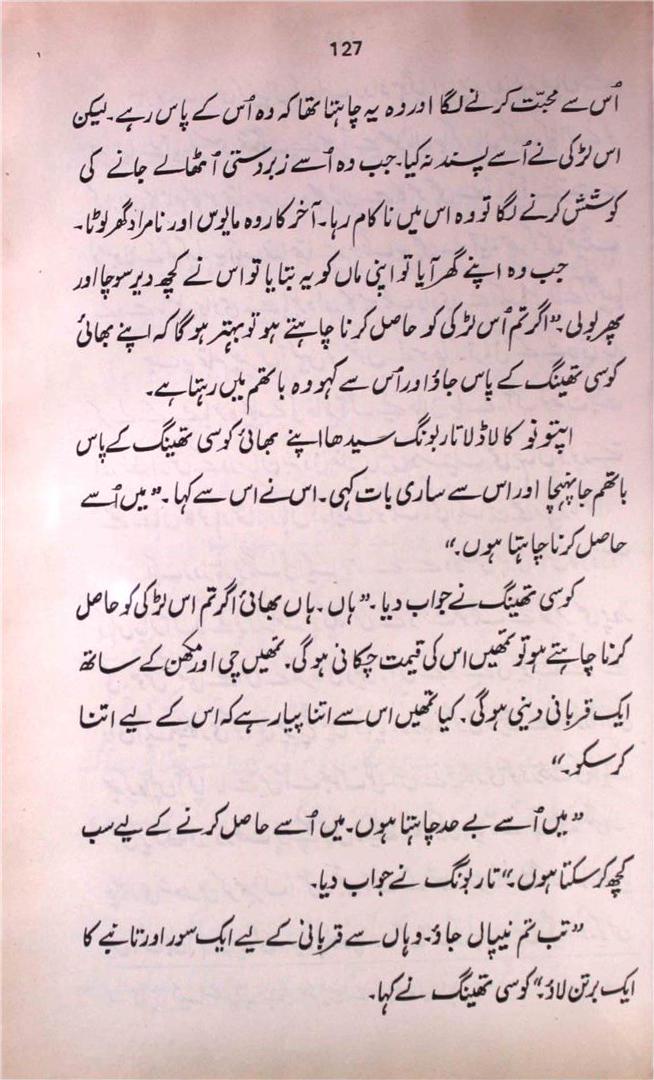 127
اُس سے محبّت کرنے لگا اور وہ یہ چاہتا تھا کہ وہ اُس کے پاس رہے۔ لیکن
اس لڑکی نے اُسے پسند نہ کیا۔ جب وہ اُسے زبردستی اُٹھالے جانے کی
کوشش کرنے لگا تو وہ اس میں ناکام رہا۔ آخر کار وہ مایوس اور نامراد گھر لوٹا۔
جب وہ اپنے گھر آیا تو اپنی ماں کو یہ بتایا تو اس نے کچھ دیر سوچا اور
پھر بولی۔ ”اگر تم اُس لڑکی کو حاصل کرنا چاہتے ہو تو بہتر ہوگا کہ اپنے بھائی
کوسی تھینگ کے پاس جاؤ اور اُس سے کہو وہ باتھم میں رہتا ہے۔
ایتونو کا لاڈلا تاربونگ سیدھا اپنے بھائی کوسی تھینگ کے پاس
باتھم جا پہنچا اور اس سے ساری بات کہی۔ اس نے اس سے کہا۔ ”میں اُسے
حاصل کرنا چاہتا ہوں۔“
کوسی تھینگ نے جواب دیا۔ ”ہاں۔ ہاں بھائی اگر تم اس لڑکی کو حاصل
کرنا چاہتے ہو تو تمھیں اس کی قیمت چکانی ہوگی۔ تمھیں چی اور مکھن کے ساتھ
ایک قربانی دینی ہوگی۔ کیا تمھیں اس سے اتنا پیار ہے کہ اس کے لیے اتنا
کر سکو۔“
”میں اُسے بے حد چاہتا ہوں۔ میں اُسے حاصل کرنے کے لیے سب
کچھ کر سکتا ہوں۔“ تاربونگ نے جواب دیا۔
”تب تم نیپال جاؤ۔ وہاں سے قربانی کے لیے ایک سور اور تانبے کا
ایک برتن لاؤ۔“ کوسی تھینگ نے کہا۔